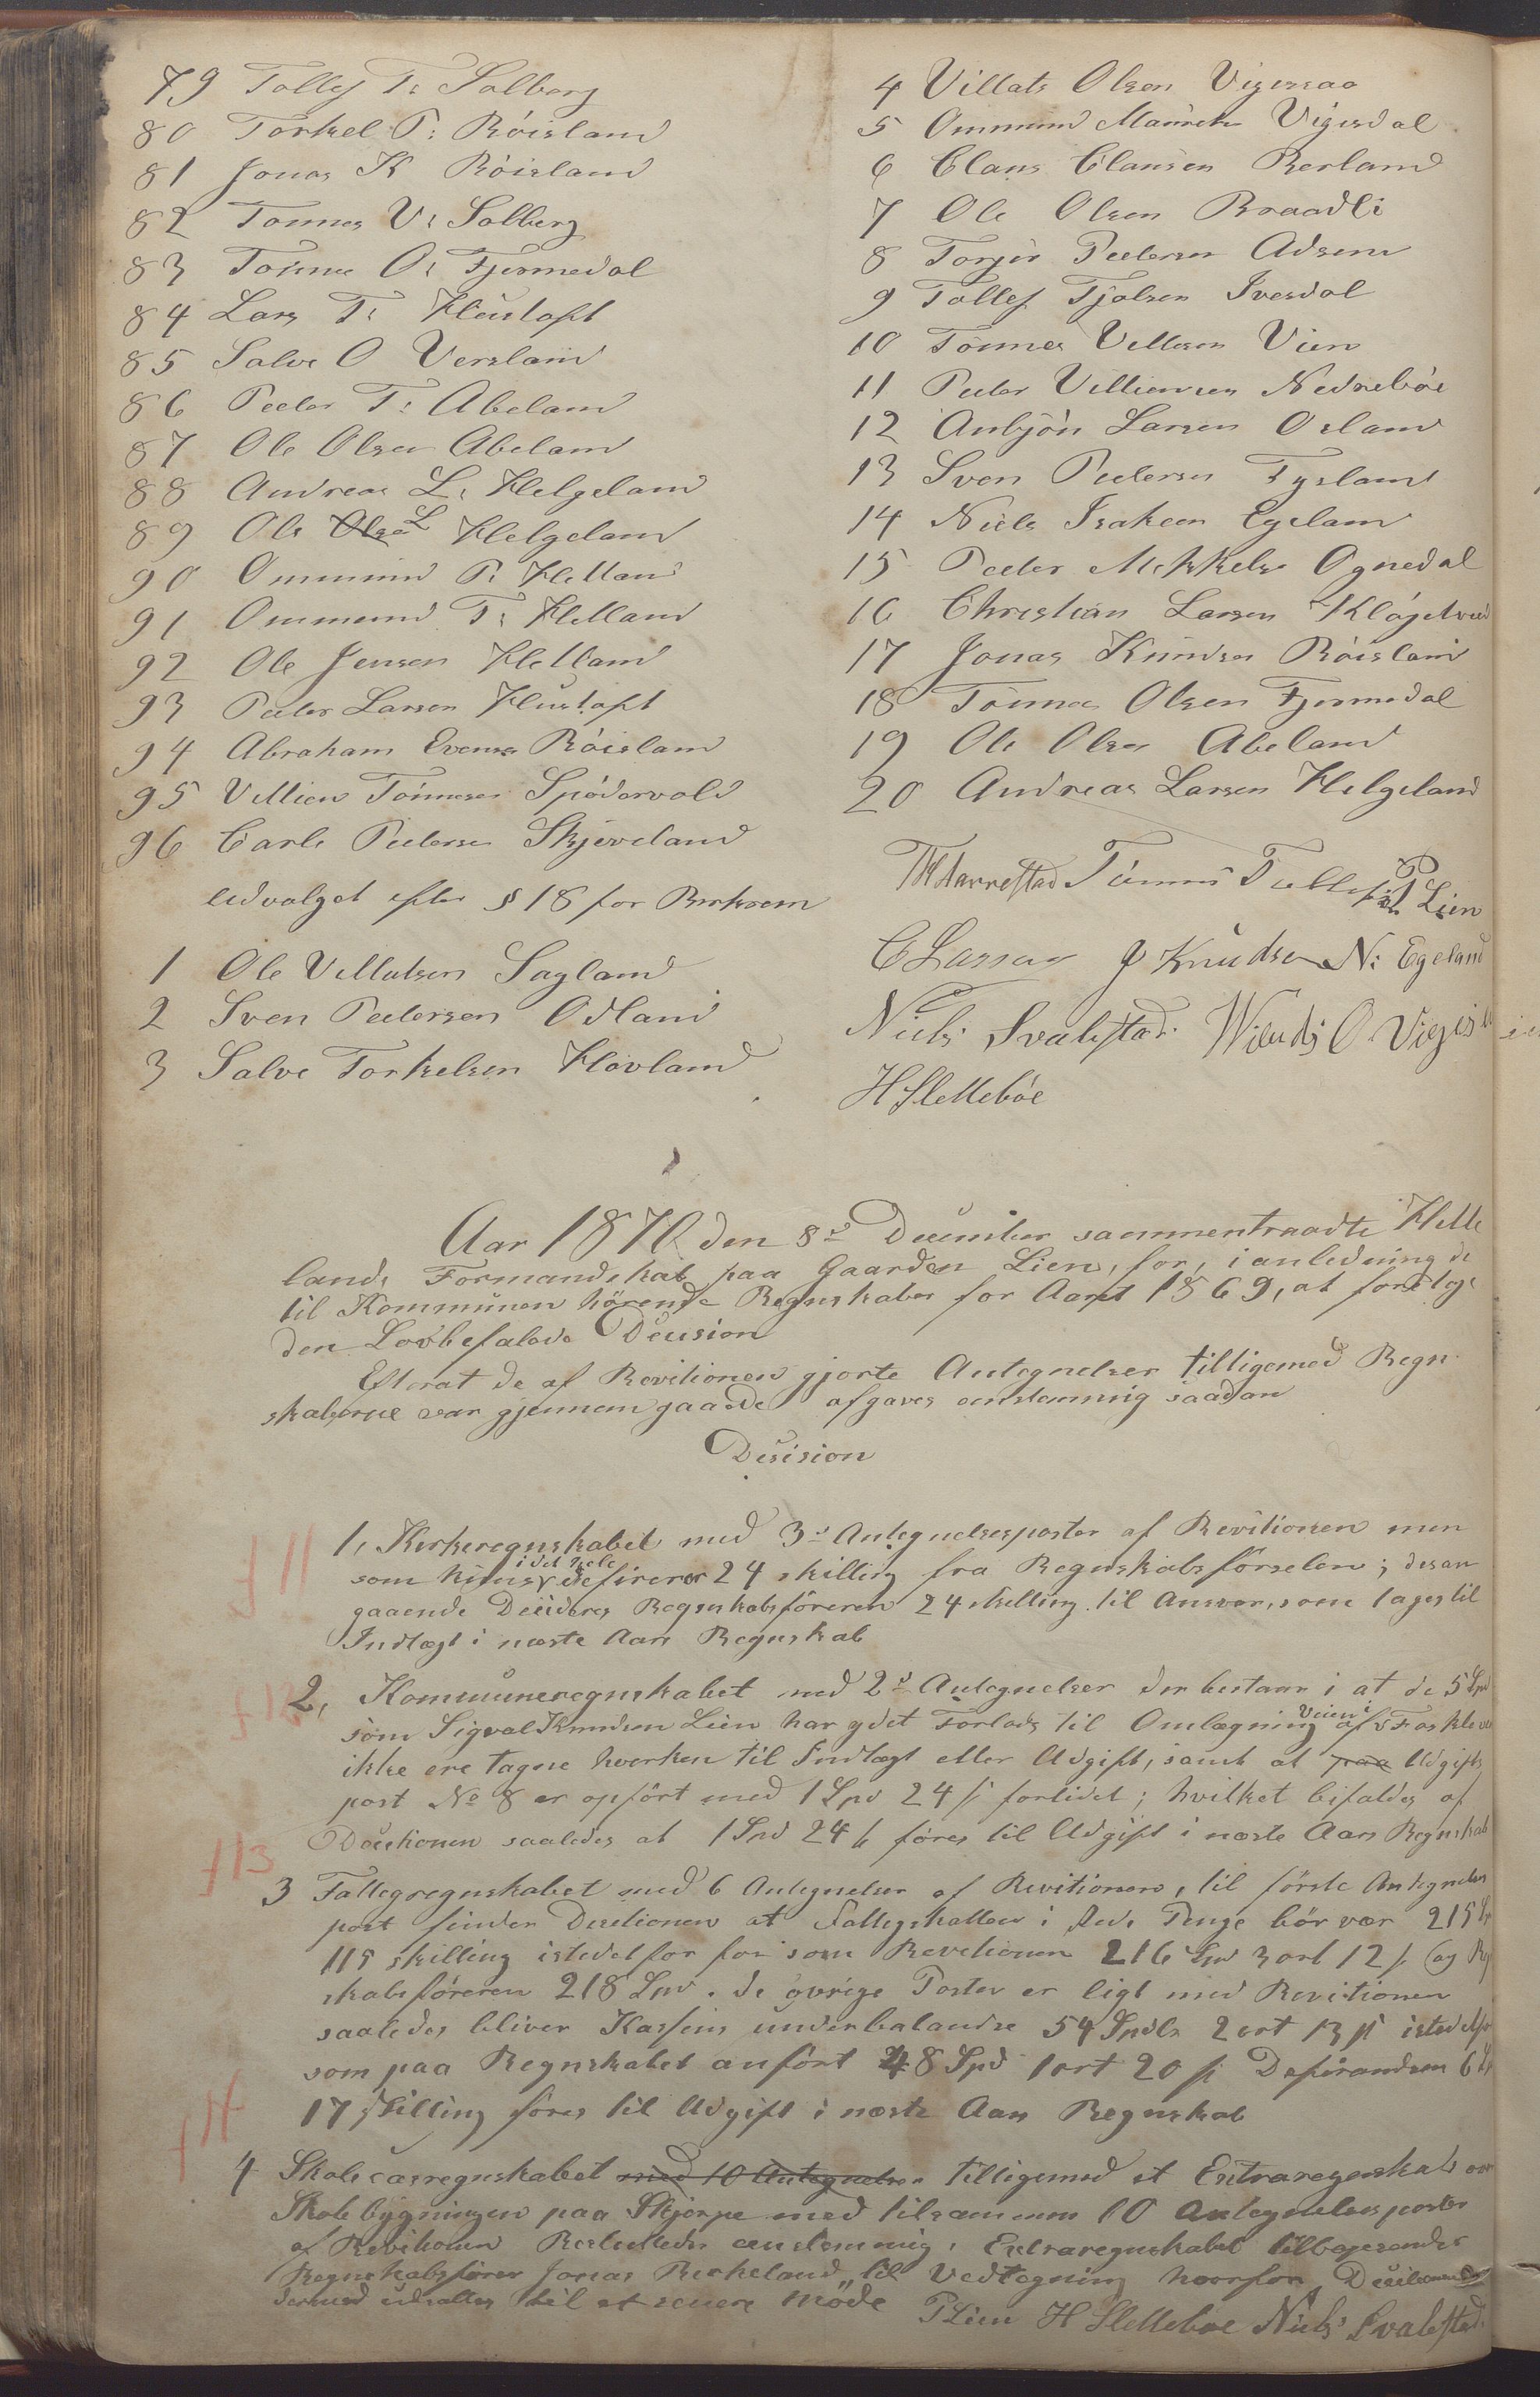 79 Tollef T: Solberg
80 Torkel P: Röisland
81 Jonas K Röisland
82 Tønnes V: Solberg
83 Tönnes O: Fjermedal
84 Lars T: Heustoft
85 Salve O Versland
86 Peder T: Abeland
87 Ole Olsen Abeland
88 Andreas L: Helgeland
89 Ole Olsen L Helgeland
90 Ommund P: Helland
91 Ommund T: Helland
92 Ole Jensen Helland
93 Peder Larsen Heustoft
94 Abraham Evensen Röisland
95 Villien Tönnesen Spödervold
96 Carle Pedersen Skjeveland
Udvalget efter § 18 for Birkrem
1 Ole Villutsen Sagland
2 Sven Pedersen Odland
3 Salve Torkelsen Hovland
4 Villats Olsen Vigessaa
5 Ommund Mauritz Vigesdal
6 Claus Clausen Rerland
7 Ole Olsen Braadli
8 Torger Pedersen Adsem
9 Tollef Tjolsen Ivesdal
10 Tönnes Villesen Vien
11 Peder Williensen Nedrebøe
12 Anbjön Larsen Orland
13 Sven Pedersen Tysland
14 Niels Isaksen Egeland
15 Peder Mikkelsen Ognedal
16 Christian Larsen Klögetved
17 Jonas Knudsen Röisland
18 Tönnes Olsen Fjermedal
19 Ole Olsen Abeland
20 Andreas Larsen Helgeland
TH Harrestad Tönnes Tollefsen P Lien
C Larsen J Knudsen N: Egeland
Niels Svalestad. Wiluds O Viges
H Slettebøe
Aar 1870 den 8de December sammentraadte Helle
lands Formandskab paa Gaarden Lien, for, i anledning de
til Kommunen hörende Regnskaber for Aaret 1869, at foretage
den Lovbefalede Decision
Efterat de af Revitionen gjorte Antegnelser tilligemed Regn
skaberne var gjennemgaaede afgaves eenstemmig saadan
Desision
f 11
1, Kirkeregnskabet med 3de Antegnelsesposter af Revitionen men
som kuns i det hele defirerer 24 skilling fra Regnskabsförselen; desan
gaaende Desideres Regnskabsföreren 24 skilling til Ansvar, som tages til
Indtægt i næste Aars Regnskab
f 12
2, Kommuneregnskabet med 2de Antegnelser der bestaar i at de 5 Spd
som Sigval Knudsen Lien har ydet Forlods til Omlægning af Veien i Faskleven
ikke ere tagne hverken til Indtægt eller Udgift, samt at paa Udgifts
post No 8 er opfört med 1 Spd 24 s forlidet; hvilket bifaldes af
Decitionen saaledes at 1 Spd 24 s föres til Udgift i næste Aars Regnskab
f 13
3 Fattigregnskabet med 6 Antegnelser af Revitionen, til förste Antegnelses
post finder Decitionen at Fattigskatten i rede Penge bör vær 215
115 skilling istedetfor for som Revitionen 216 Spd 3 ort 12 s og Reg
skabsföreren 218 Spd. de övrige Poster er ligt med Revitionen
saaledes bliver Kassens underbalandse 54 Spdlr 2 ort 13 s istedetfor
som paa Regnskabet anfört 48 Spd 1 ort 20 s Defirandsen 6
17 skilling föres til Udgift i næste Aars Regnskab
f 14
4 Skolecasregnskabet med 10 Antegnelser tilligemed et Extraregnskab over
Skolebygningen paa Skjerpe med tilsammen 10 Antegnelsesposter
af Revitionen Besluttedes eenstemmig, Extraregnskabet tilbagesendes
Regnskabsförer Jonas Birkeland til Vedtegning hvorfor Decitionen
dermed udsattes til et senere Möde
P Lien H Slettebøe Niels Svalestad.